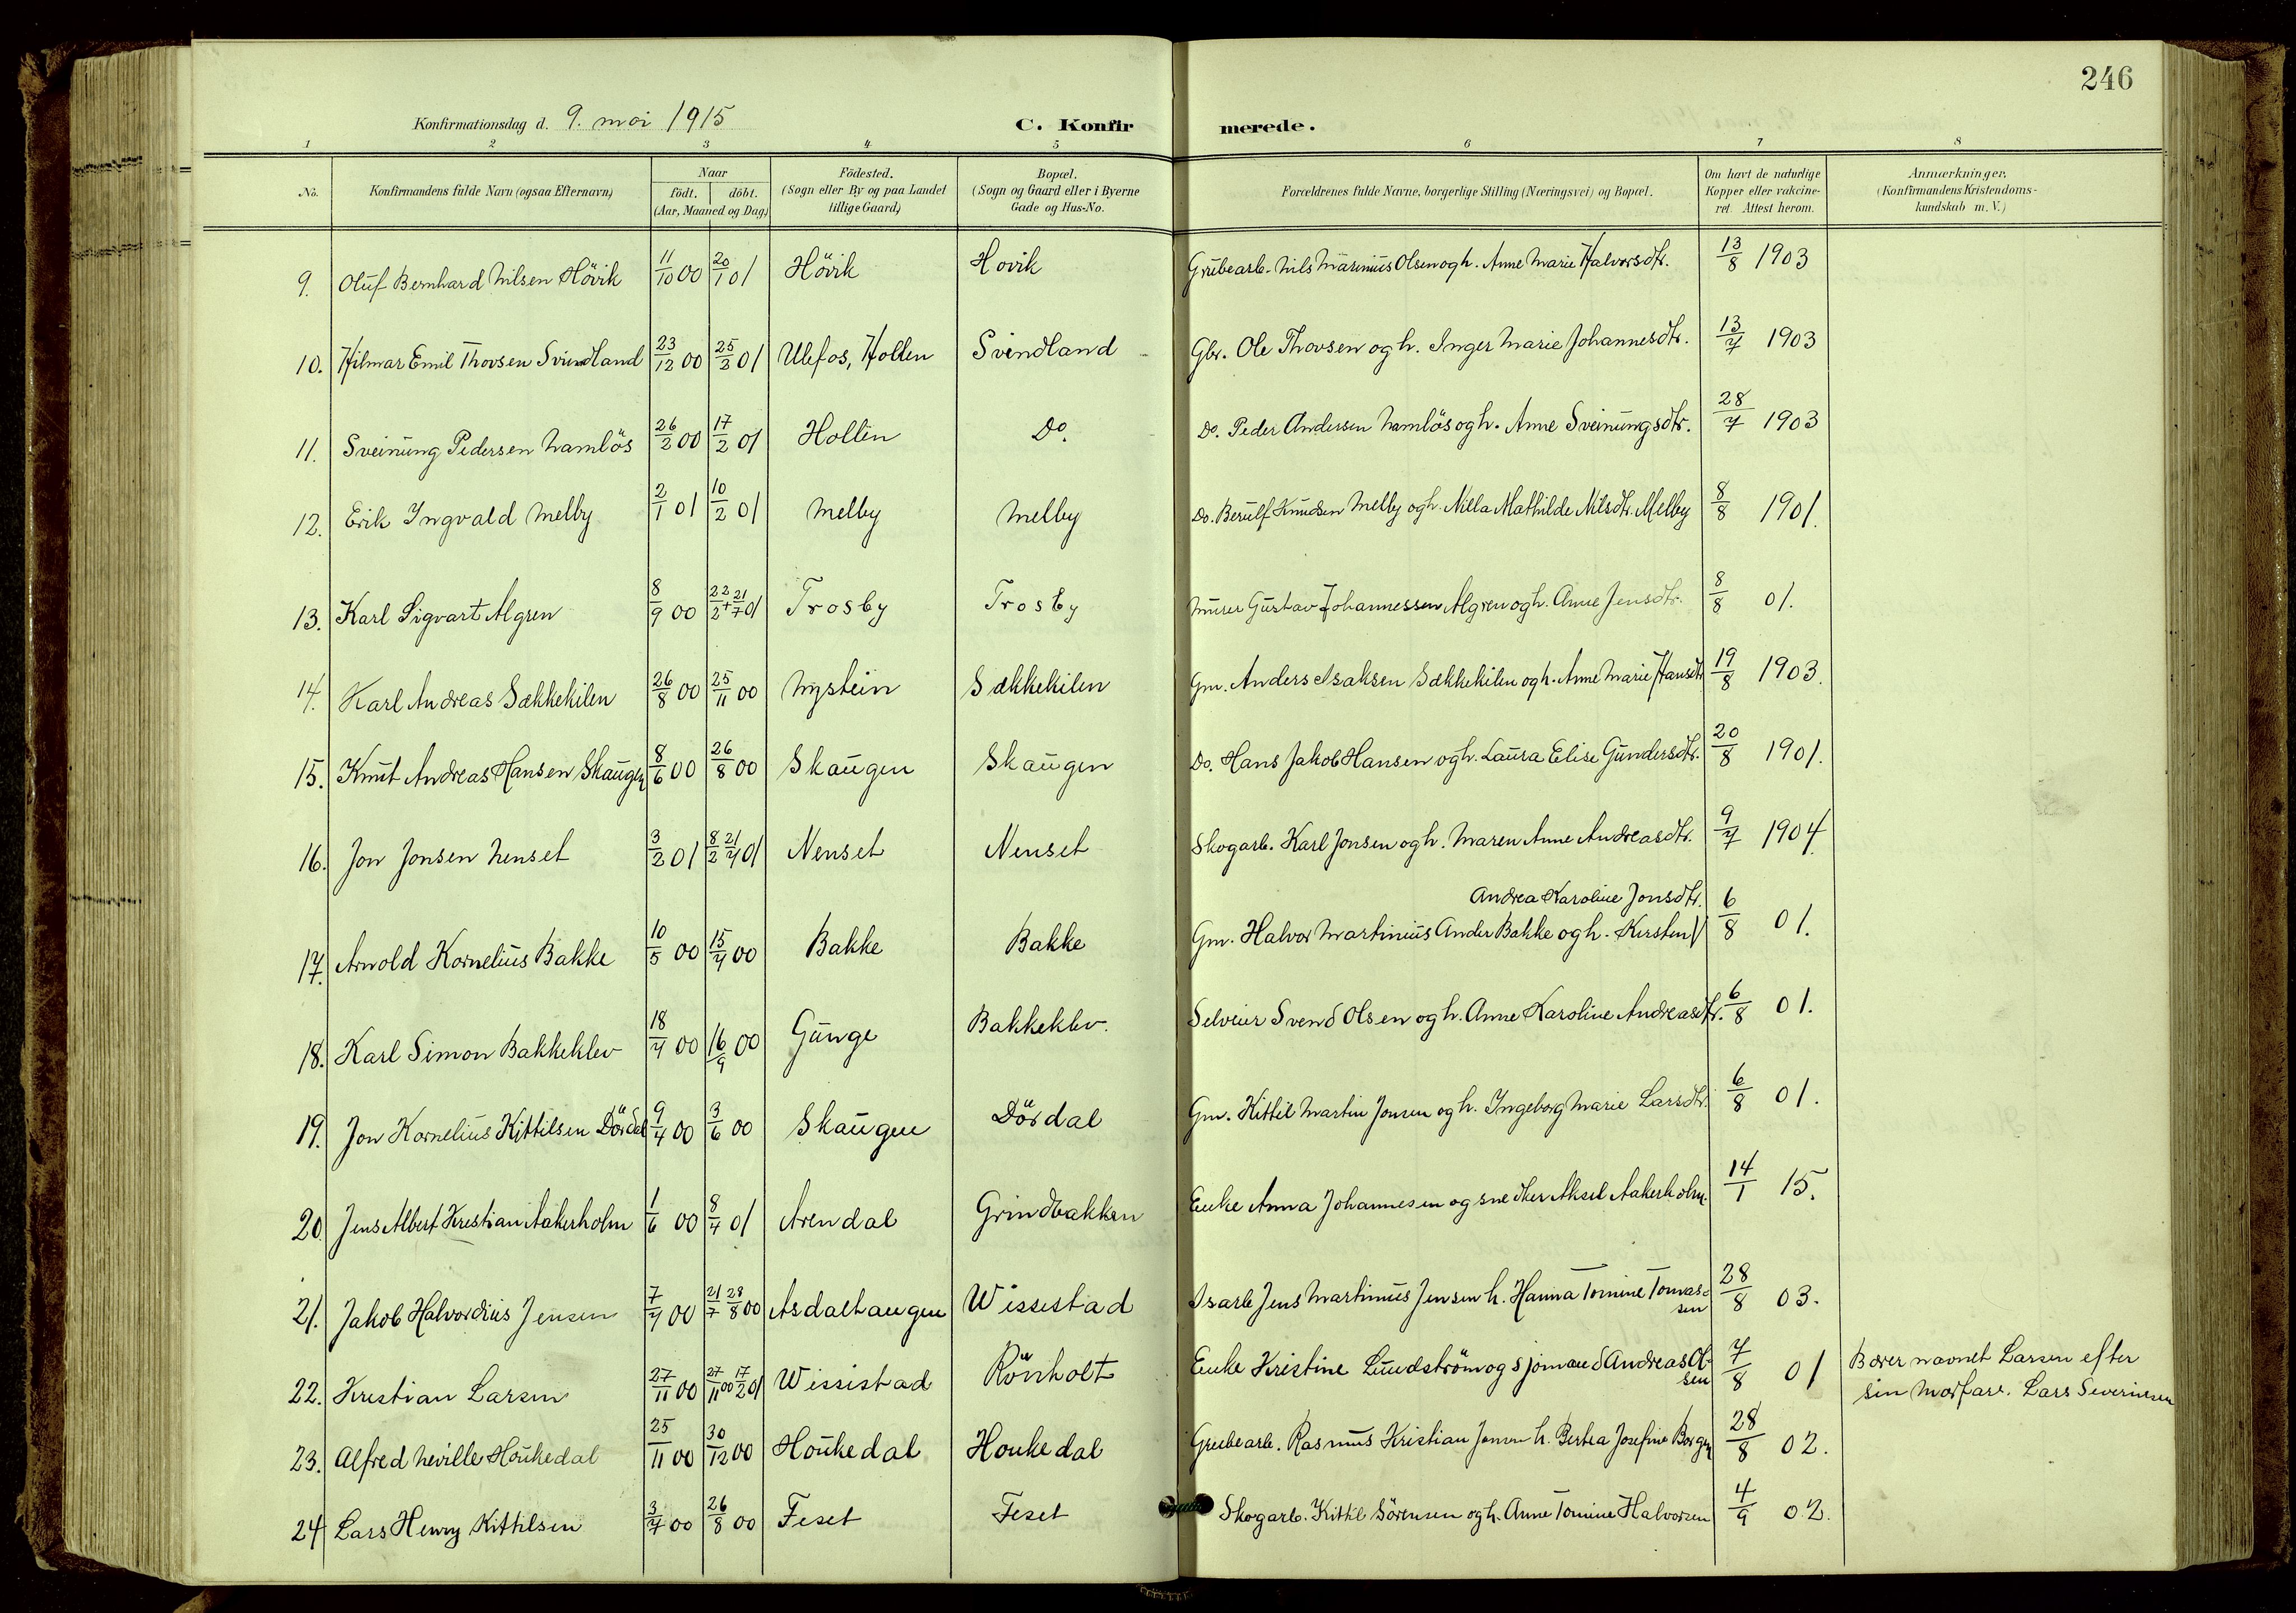 246
Konfirmationsdag d. 9. mai 1915 C. Konfirmerede.
1 2 3 4 5 6 7 8
No. Konfirmandens fulde Navn (ogsaa Efternavn) Naar født. døbt. (Aar, Maaned og Dag) Fødested. (Sogn eller By og paa Landet tillige Gaard) Bopæl. (Sogn og Gaard eller i Byerne Gade og Hus-No. Forældrenes fulde Navne, borgerlige Stilling (Næringsvei) og Bopæl. Om havt de naturlige Kopper eller vakcineret. Attest herom. Anmærkninger. (Konfirmandens Kristendomskundskab m. V.)
9. Oluf Bernhard Nilsen Hövik 11/10 00 20/1 01 Hövik Hovik Grubearb. Nils Marinius Olsen og h. Anne Marie Halvorsdtr. 13/8 1903
10. Hilmar Emil Thovsen Svindland 23/12 00 25/2 01 Ulefos, Hollen Svindland Gbr. Ole Thovsen og h. Inger Marie Johannesdtr. 13/7 1903
11. Sveinung Pedersen Namlös 26/2 00 17/2 01 Hollen Do. Do. Peder Andersen Namlös og h. Anne Sveinungsdtr. 28/7 1903
12. Erik Ingvald Melby 2/1 01 10/2 01 Melby Melby Do. Berulf Knudsen Melby og h. Nilla Mathilde Nilsdtr. Melby 8/8 1901.
13. Karl Sigvart Algren 8/9 00 22/2 + 21/7 01 Trosby Trosby Murer Gustav Johannessen Algren og h. Anne Jensdtr. 8/8 01.
14. Karl Andreas Sækkekilen 26/8 00 25/11 00 Nystein Sækkekilen Gm. Anders Isaksen Sækkekilen og h. Anne Marie Hansdtr 19/8 1903.
15. Knut Andreas Hansen Skaugen 8/6 00 26/8 00 Skaugen Skaugen Do. Hans Jakob Hansen og h. Laura Elise Gundersdtr. 20/8 1901.
16. Jon Jonsen Nenset 3/2 01 8/2 21/7 01 Nenset Nenset Skogarb. Karl Jonsen og h. Maren Anne Andreasdtr. 9/7 1904
Andrea Karoline Jonsdtr.
17. Arnold Kornelius Bakke 10/5 00 15/7 00 Bakke Bakke Gm. Halvor Martinius Ander Bakke og h. Kirsten 6/8 01.
18. Karl Simon Bakkeklev 18/7 00 16/9 00 Gunge Bakkeklev. Selveier Svend Olsen og h. Anne Karoline Andreasdtr. 6/8 01.
19. Jon Kornelius Kittilsen Dördal 9/4 00 3/6 00 Skaugen Dördal Gm. Kittil Martin Jonsen og h. Ingeborg Marie Larsdtr. 6/8 01.
20 Jens Albert Kristian Aakerholm 1/6 00 8/4 01 Arendal Grindbakken Enke Anna Johannesen og snedker Aksel Aakerholm. 14/1 15.
21. Jakob Halvordius Jensen 7/7 00 21/7 28/8 00 Asdalhaugen Wissestad Isarb Jens Martinius Jensen h. Hanna Tomine Tomassen 28/8 03.
22. Kristian Larsen 27/11 00 27/11 00 17/2 01 Wissistad Rönholt Enke Kristine Lundström og sjömand Andreas Olsen 7/8 01 Bærer navnet Larsen efter
sin morfar. Lars Severinsen
23. Alfred Neville Houkedal 25/11 00 30/12 00 Houkedal Houkedal Grubearb. Rasmus Kristian Jensen h. Bertea Josefine Borgen 28/8 02.
24 Lars Henry Kittilsen 3/7 00 26/8 00 Feset Feset Skogarb. Kittil Sörensen og h. Anne Tomine Halvorsen 4/9 02.